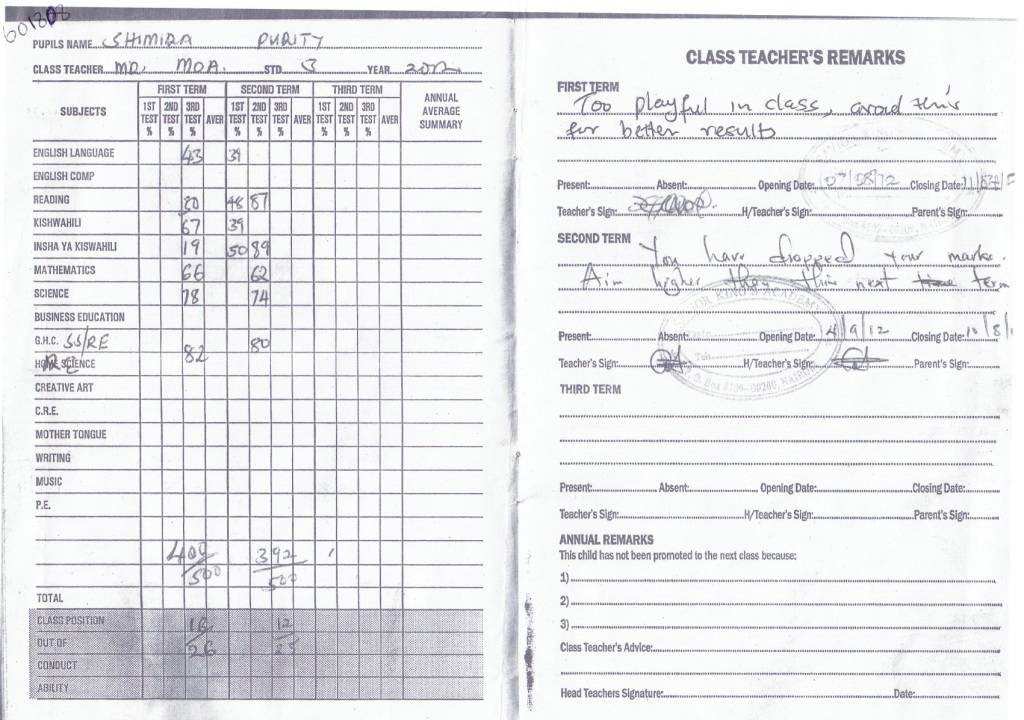 601808
PUPILS NAME SHIMIRA PURITY
CLASS TEACHER MR. MOA. STD 3 YEAR 2012
SUBJECTS FIRST TERM SECOND TERM THIRD TERM ANNUAL AVERAGE SUMMARY
1ST TEST % 2ND TEST % 3RD TEST % AVER 1ST TEST % 2ND TEST % 3RD TEST % AVER 1ST TEST % 2ND TEST % 3RD TEST % AVER
ENGLISH LANGUAGE 43 39
ENGLISH COMP
READING 20 48 87
KISHWAHILI 67 39
INSHA YA KISWAHILI 19 50 89
MATHEMATICS 66 62
SCIENCE 78 74
BUSINESS EDUCATION
G.H.C. SS/RE 82 80
HOME SCIENCE
CREATIVE ART
C.R.E.
MOTHER TONGUE
WRITING
MUSIC
P.E.
409 392
500 500
TOTAL
CLASS POSITION 16 12
OUT OF 26 25
CONDUCT
ABILITY
CLASS TEACHER'S REMARKS
FIRST TERM
Too playful in class, avoid this
for better results
Present: Absent: Opening Date: 07/05/12 Closing Date:
Teacher's Sign: H/Teacher's Sign: Parent's Sign:
SECOND TERM
You have dropped your marks.
Aim higher this next time term
Present: Absent: Opening Date: 4/9/12 Closing Date: 10/8/
Teacher's Sign: H/Teacher's Sign: Parent's Sign:
THIRD TERM
Present: Absent: Opening Date: Closing Date:
Teacher's Sign: H/Teacher's Sign: Parent's Sign:
ANNUAL REMARKS
This child has not been promoted to the next class because:
1)
2)
3)
Class Teacher's Advice:
Head Teachers Signature: Date: